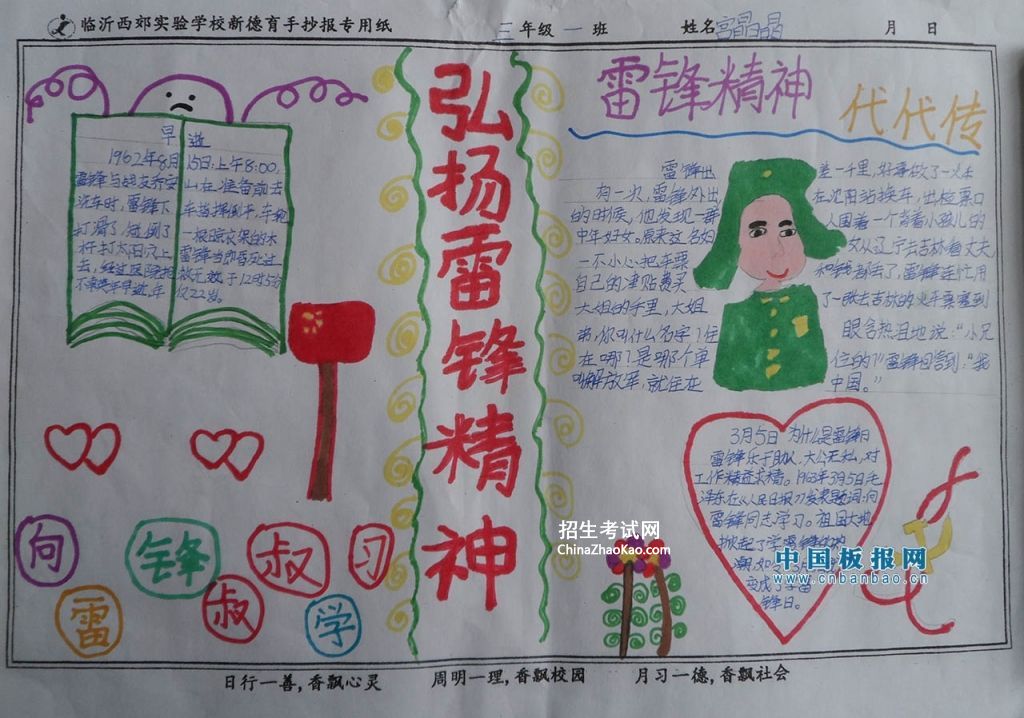 临沂西郊实验学校新德育手抄报专用纸
三年级一班
姓名宫晶晶
月 日
早逝
1962年8月15日:上午8:00,
雷锋与战友乔安山在准备前去
洗车时,雷锋下车指挥倒车,车轮
打滑了,碰倒了一根晾衣架的木
杆打太阳穴上,雷锋当即昏死过
去,经过医院抢救无效于12时5分
仅22岁。
向
雷
锋
叔
叔
学
习
弘扬雷锋精神
雷锋精神
代代传
雷锋出差一千里,好事做了一火车
有一次,雷锋外出在沈阳站换车,出检票口
的时候,他发现一群人围着一个背着小孩儿的
中年妇女。原来这名妇女从辽宁去吉林看丈夫
一不小心把车票和钱
雷锋连忙用
自己的津贴费买了一张去吉林的火车票塞到
大姐的手里,大姐眼含热泪地说:“小兄
弟,你叫什么名字?住在哪?是哪个单位的?”雷锋回答到:“我
叫解放军,就住在中国。”
3月5日 为什么是雷锋日
雷锋乐于助人,大公无私,对
工作精益求精。1963年3月5日毛
泽东在《人民日报》发表题词:向
雷锋同志学习。祖国大地
掀起了学雷锋的热
潮,
变成了学雷
锋日。
招生考试网
ChinaZhaoKao.com
中国板报网
www.cnbanbao.cn
日行一善,香飘心灵 周明一理,香飘校园 月习一德,香飘社会